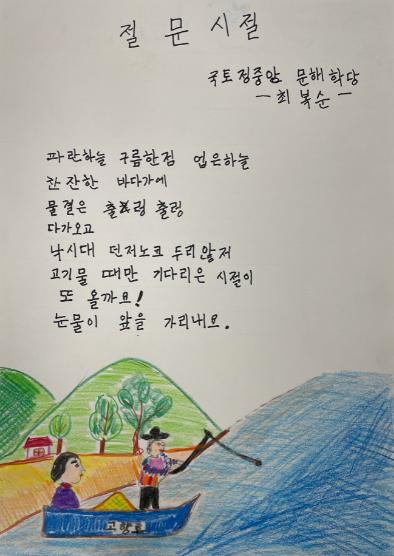 절문시절
국토정중앙 문해학당
- 최복순 -
파란하늘 구름한점 업은하늘
잔잔한 바다가에
물결은 출렁 출렁
다가오고
낙시대 던저노코 두리앉저
고기물 때만 기다리은 시절이
또 올까요!
눈물이 앞을 가리내요.
고향호